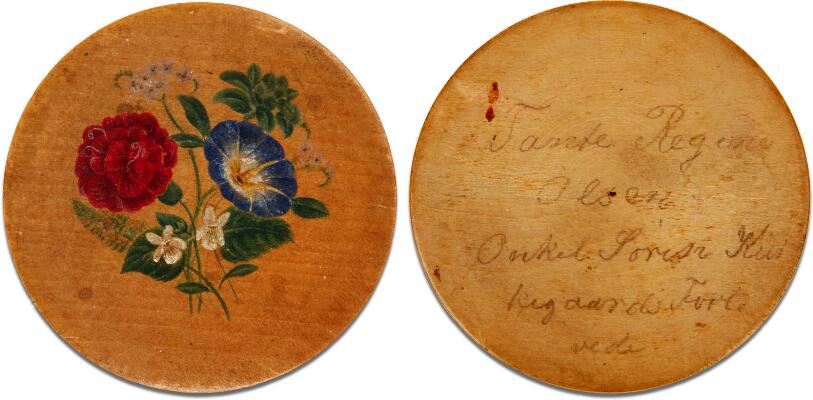 Tante Regine
Olsen
Onkel Søren Kier
kegaards Forlo
vede